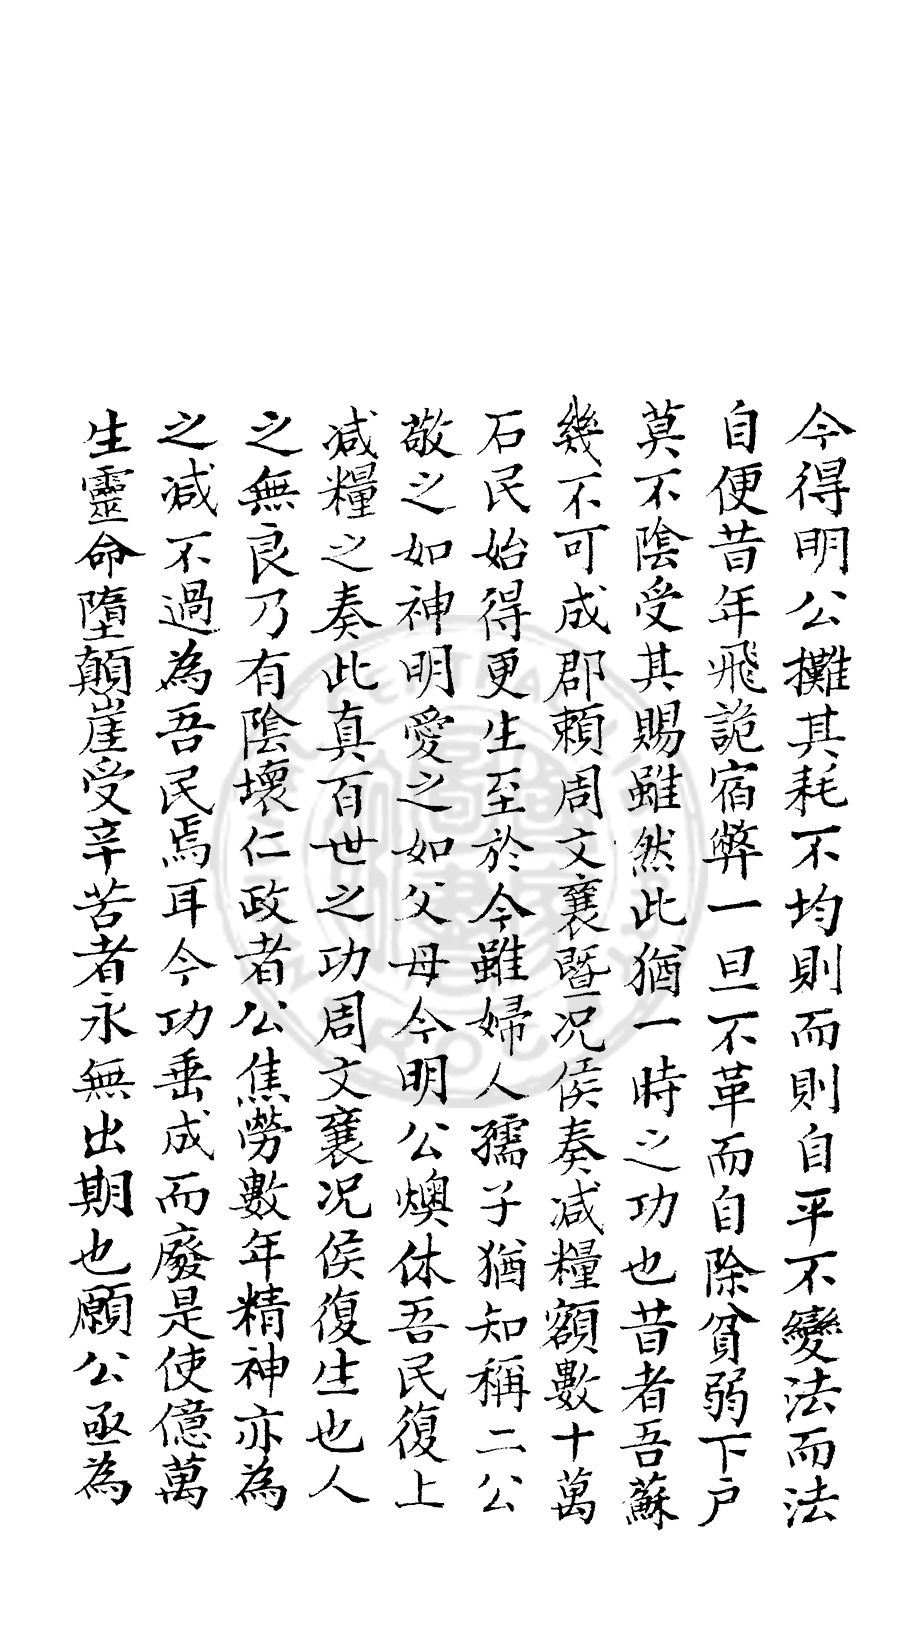 今得明公攤其耗不均則而則自平不變法而法
自便昔年飛詭宿弊一旦不革而自除貧弱下户
莫不陰受其賜雖然此猶一時之功也昔者吾蘇
幾不可成郡賴周文襄暨况侯奏减糧額數十萬
石民始得更生至於今雖婦人孺子猶知稱二公
敬之如神明愛之如父母今明公燠休吾民復上
减糧之奏此真百世之功周文襄况侯復生也人
之無良乃有陰壞仁政者公焦勞數年精神亦為
之减不過為吾民焉耳今功垂成而廢是使億萬
生靈命墮顛崖受辛苦者永無出期也願公亟為